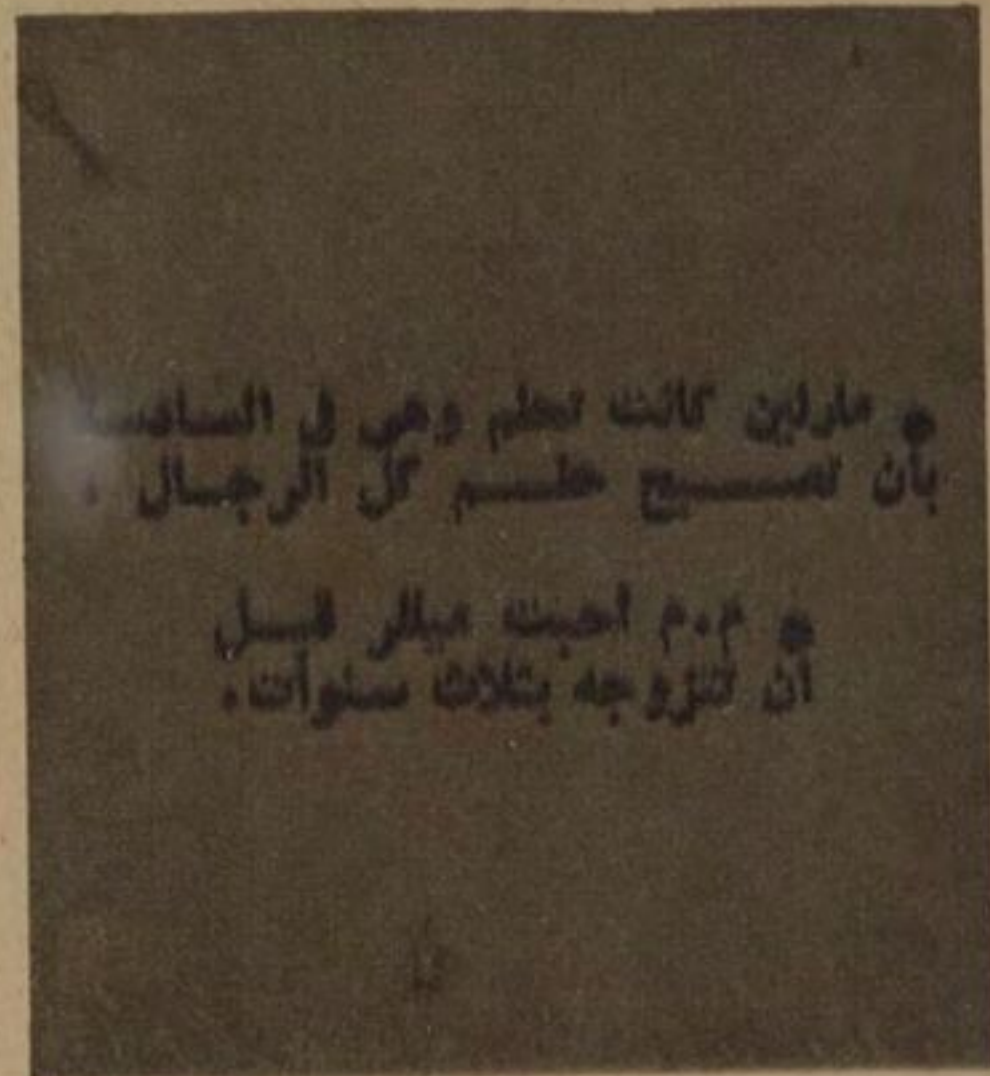 ● مارلين كانت تحلم وهي في السادسة
بأن تصبح حلم كل الرجال .
● م.م أحبت ميللر قبل
أن تتزوجه بثلاث سنوات.